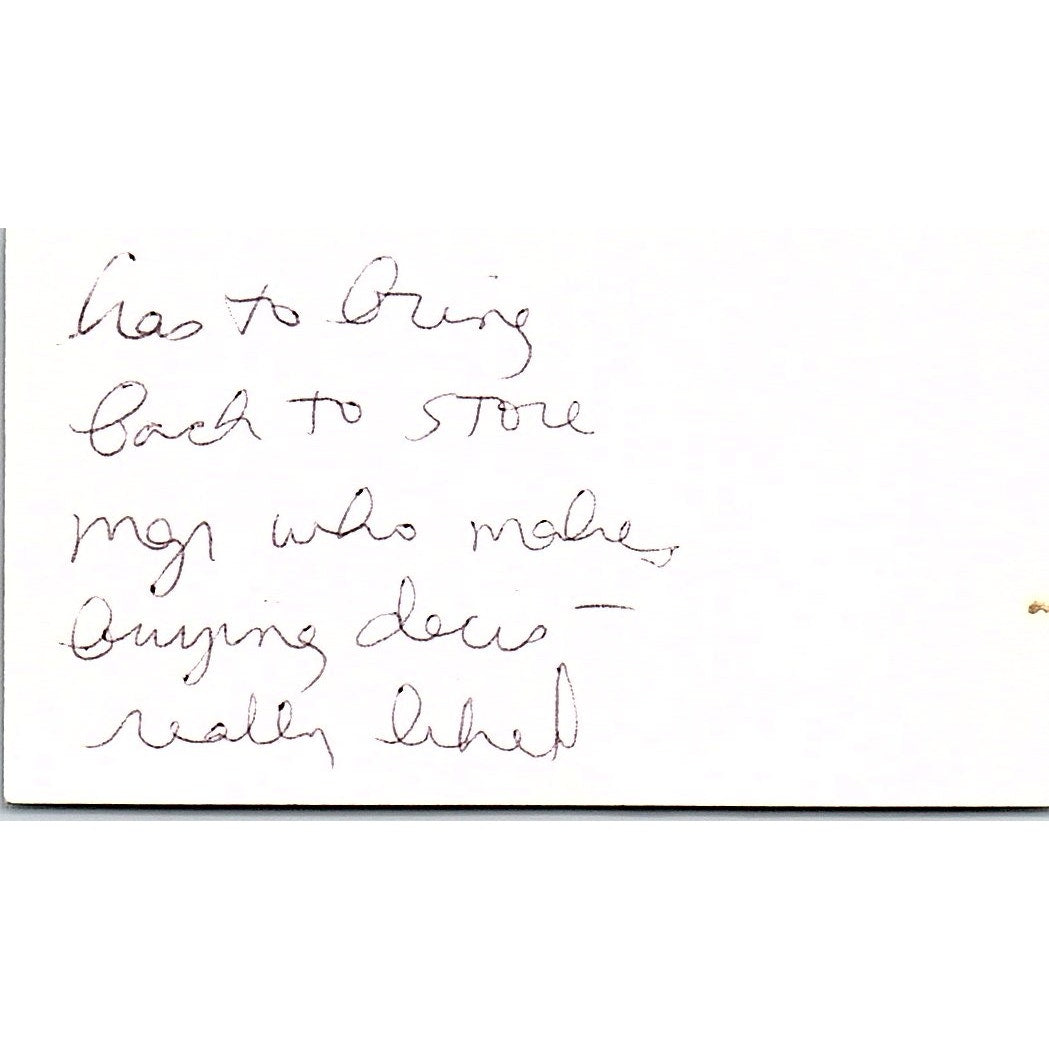 has to bring
back to store
mgr who makes
buying decis –
really liked